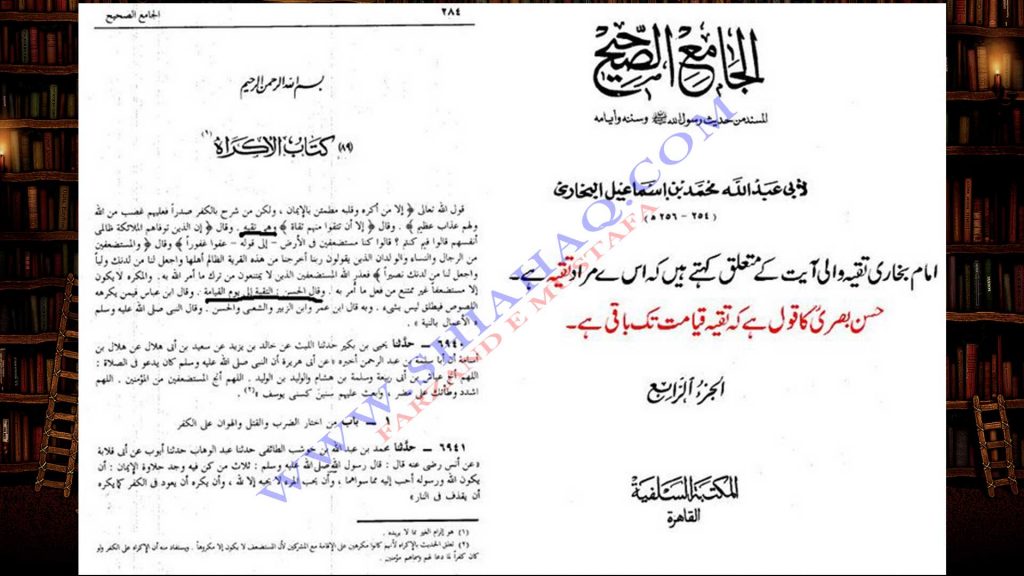 الجامع الصحيح
المسند من حديث رسول الله ﷺ وسننه وأيامه
لأبي عبد الله محمد بن إسماعيل البخاري
(٢٥٤ - ٢٥٦ هـ)
امام بخاری تقیہ والی آیت کے متعلق کہتے ہیں کہ اس سے مراد تقیہ ہے۔
حسن بصریؒ کا قول ہے کہ تقیہ قیامت تک باقی ہے۔
الجزء الرابع
المكتبة السلفية
القاهرة
٢٨٤
الجامع الصحيح
بسم الله الرحمن الرحيم
(٨٩) كتاب الإكراه (١)
قول الله تعالى ﴿ إلا من أكره وقلبه مطمئن بالإيمان ، ولكن من شرح بالكفر صدراً فعليهم غضب من الله
ولهم عذاب عظيم ﴾ . وقال ﴿ إلا أن تتقوا منهم تقاة ﴾ وهى تقيه . وقال ﴿ إن الذين توفاهم الملائكة ظالمى
أنفسهم قالوا فيم كنتم ؟ قالوا كنا مستضعفين فى الأرض - إلى قوله - عفوا غفوراً ﴾ وقال ﴿ والمستضعفين
من الرجال والنساء والولدان الذين يقولون ربنا أخرجنا من هذه القرية الظالم أهلها واجعل لنا من لدنك ولياً
واجعل لنا من لدنك نصيراً ﴾ فعذر الله المستضعفين الذين لا يمتنعون من ترك ما أمر الله به . والمكره لا يكون
إلا مستضعفاً غير ممتنع من فعل ما أمر به . وقال الحسن : التقية إلى يوم القيامة . وقال ابن عباس فيمن يكرهه
اللصوص فيطلق ليس بشىء . وبه قال ابن عمر وابن الزبير والشعبى والحسن . وقال النبى صلى الله عليه وسلم
« الأعمال بالنية » .
٦٩٤٠ — حدثنا يحيى بن بكير حدثنا الليث عن خالد بن يزيد عن سعيد بن أبى هلال عن هلال بن
أسامة أن أبا سلمة بن عبد الرحمن أخبره « عن أبى هريرة أن النبى صلى الله عليه وسلم كان يدعو فى الصلاة :
اللهم أنج عياش بن أبى ربيعة وسلمة بن هشام والوليد بن الوليد . اللهم أنج المستضعفين من المؤمنين . اللهم
اشدد وطأتك على مضر ، وابعث عليهم سنين كسنى يوسف » (٢) .
١ — باب من اختار الضرب والقتل والهوان على الكفر
٦٩٤١ — حدثنا محمد بن عبد الله بن حوشب الطائفى حدثنا عبد الوهاب حدثنا أيوب عن أبى قلابة
« عن أنس رضى عنه قال : قال رسول الله صلى الله عليه وسلم : ثلاث من كن فيه وجد حلاوة الإيمان : أن
يكون الله ورسوله أحب إليه مما سواهما ، وأن يحب المرء لا يحبه إلا لله ، وأن يكره أن يعود فى الكفر كما يكره
أن يقذف فى النار »
(١) هو إلزام الغير بما لا يريده .
(٢) تعلق الحديث بالإكراه لأنهم كانوا مكرهين على الإقامة مع المشركين لأن المستضعف لا يكون إلا مكروهاً . ويستفاد منه أن الإكراه على الكفر ولو
كان كفراً لما دعا لهم وسماهم مؤمنين .
WWW.SHIAHAQ.COM
FARZAND E MUSTAFA